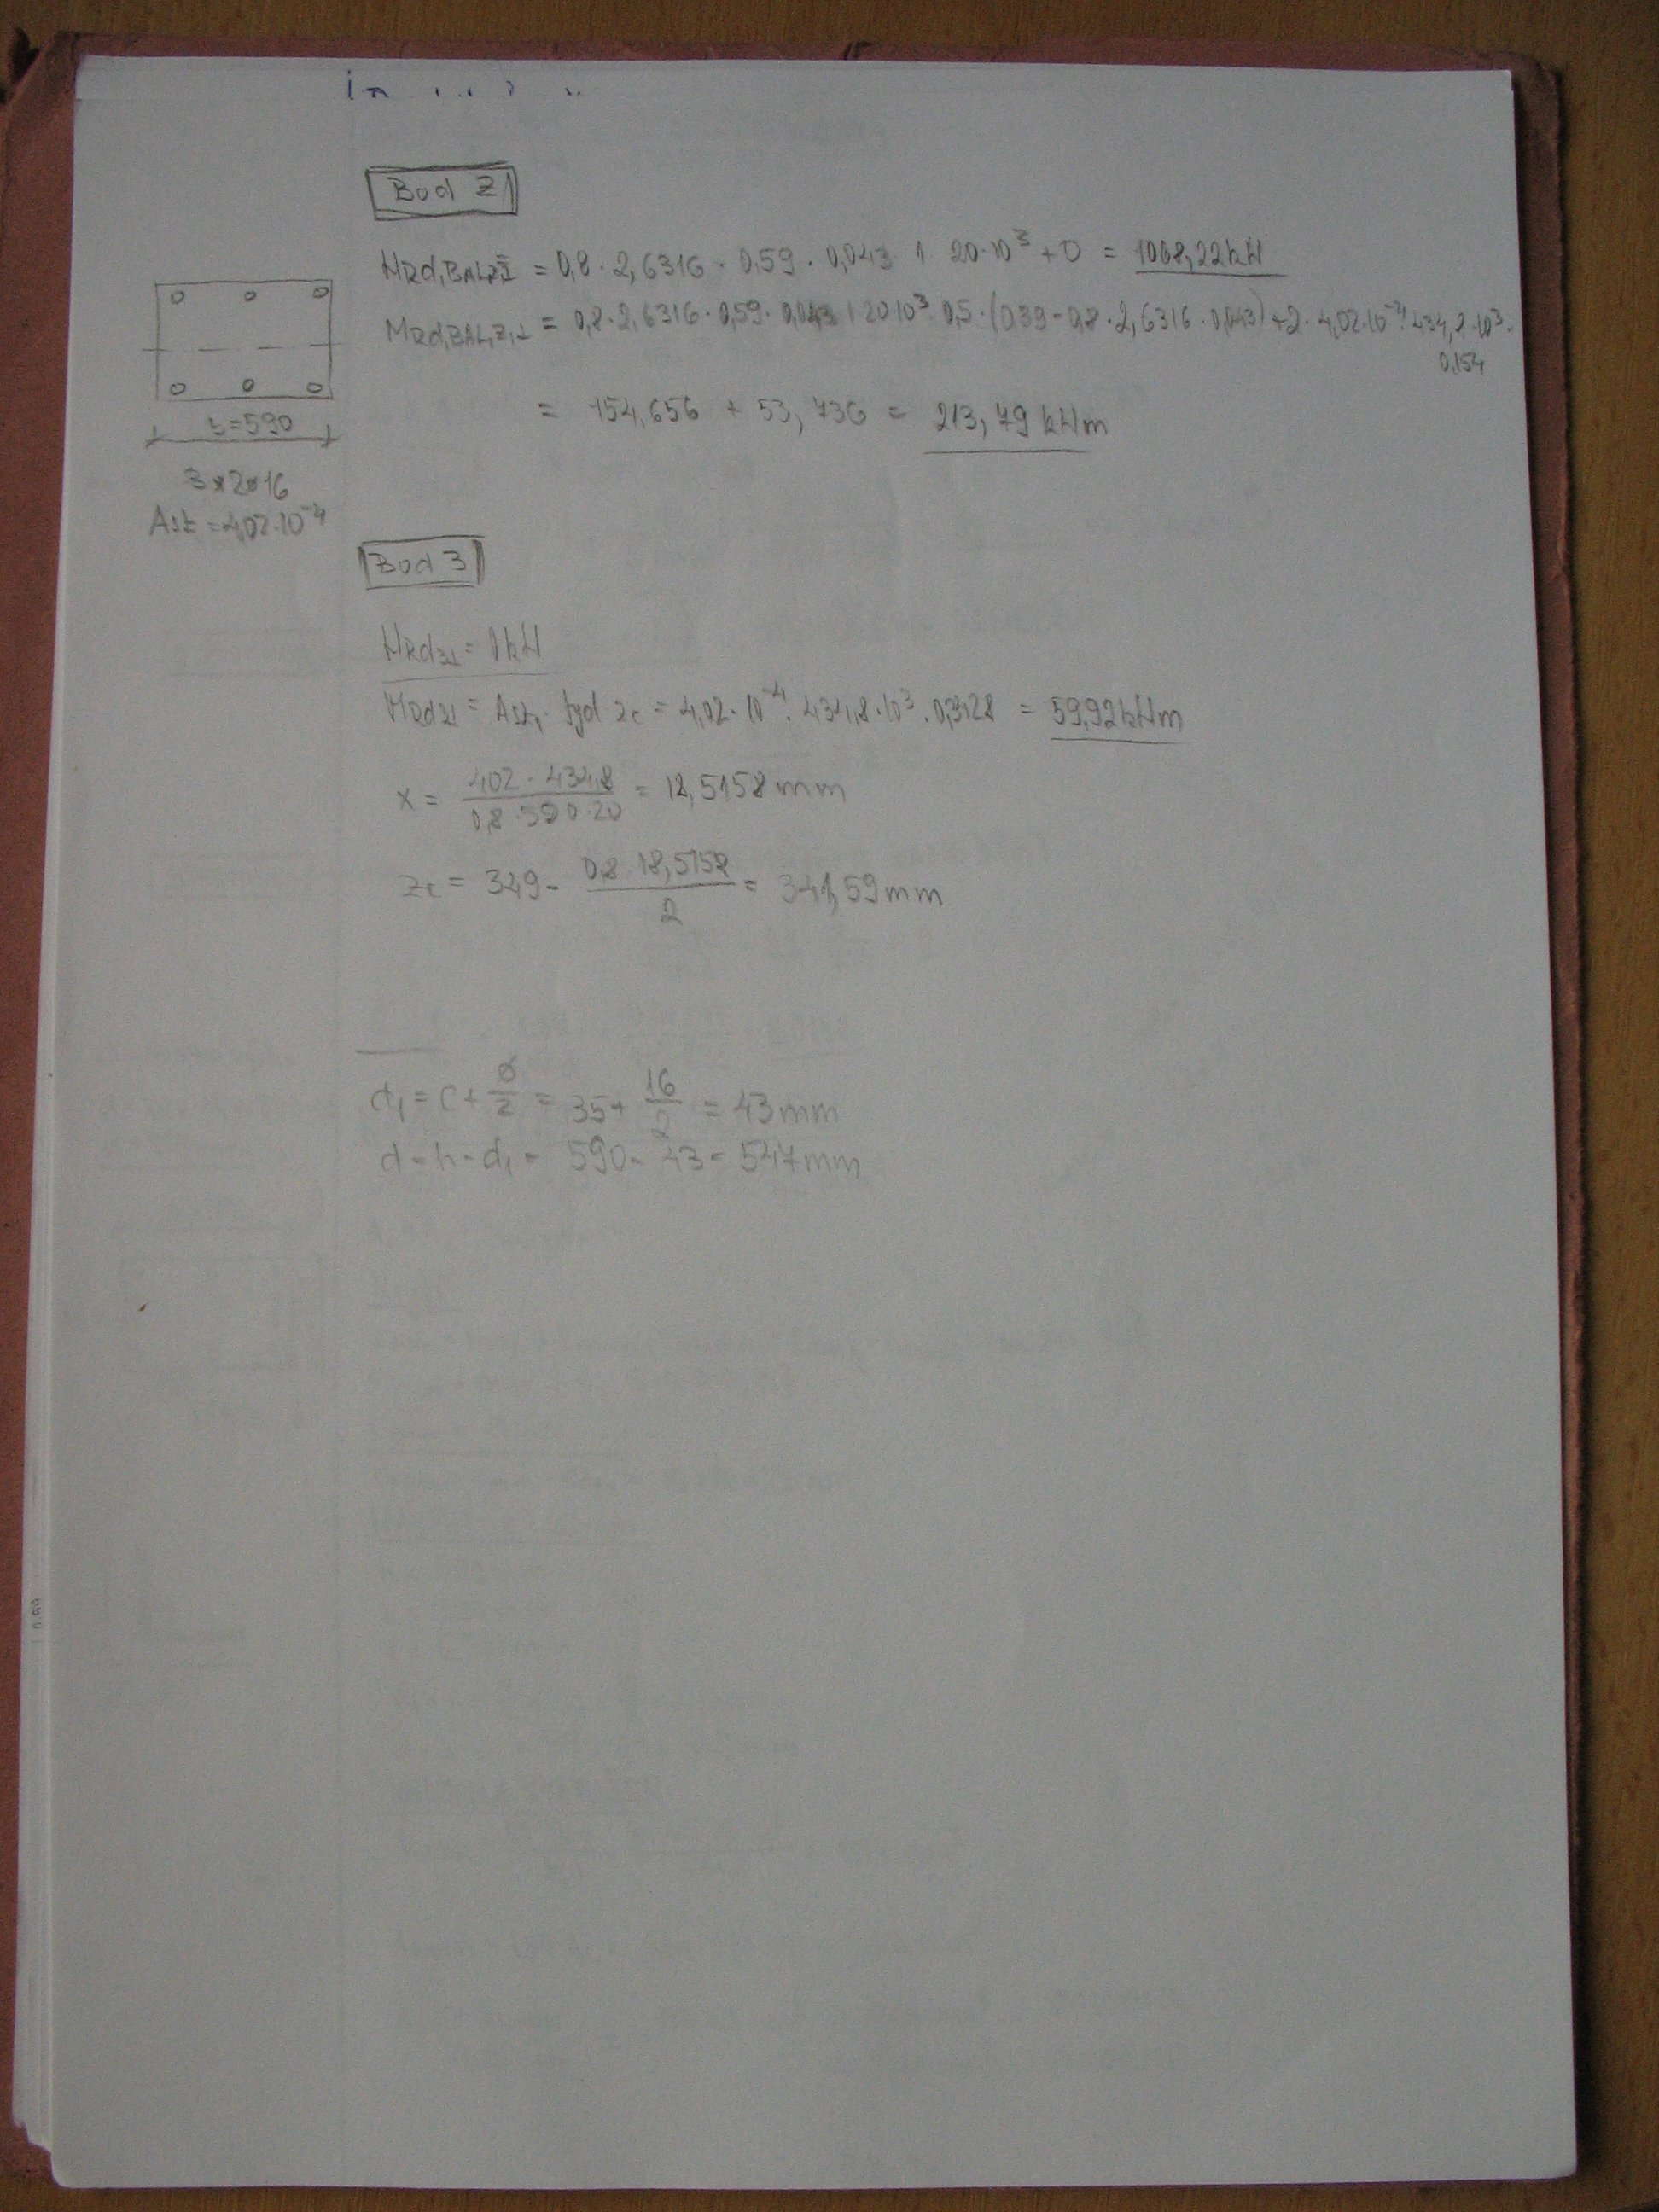 Bod 2
NRd,BAL,Z,I = 0,8 · 2,6316 · 0,59 · 0,043 · 1 20·10³ + 0 = 1068,22 kN
MRd,BAL,Z,1 = 0,8 · 2,6316 · 0,59 · 0,043 · 1 · 20·10³ · 0,5 · (0,39 - 0,8 · 2,6316 · 0,043) + 2 · 4,02·10⁻⁴ · 434,8·10³ ·
0,154
= 154,656 + 53,736 = 213,79 kNm
t=590
3x2ø16
Ast = 4,02·10⁻⁴
Bod 3
NRd31 = 0kN
MRd31 = Ast, · fyd zc = 4,02·10⁻⁴ · 434,8·10³ · 0,3428 = 59,92kNm
x = 402 · 434,8 / 0,8 · 590 · 20 = 18,5158 mm
zc = 349 - 0,8 · 18,5158 / 2 = 341,59mm
d₁ = c + ø/2 = 35 + 16/2 = 43mm
d = h - d₁ = 590 - 43 = 547mm